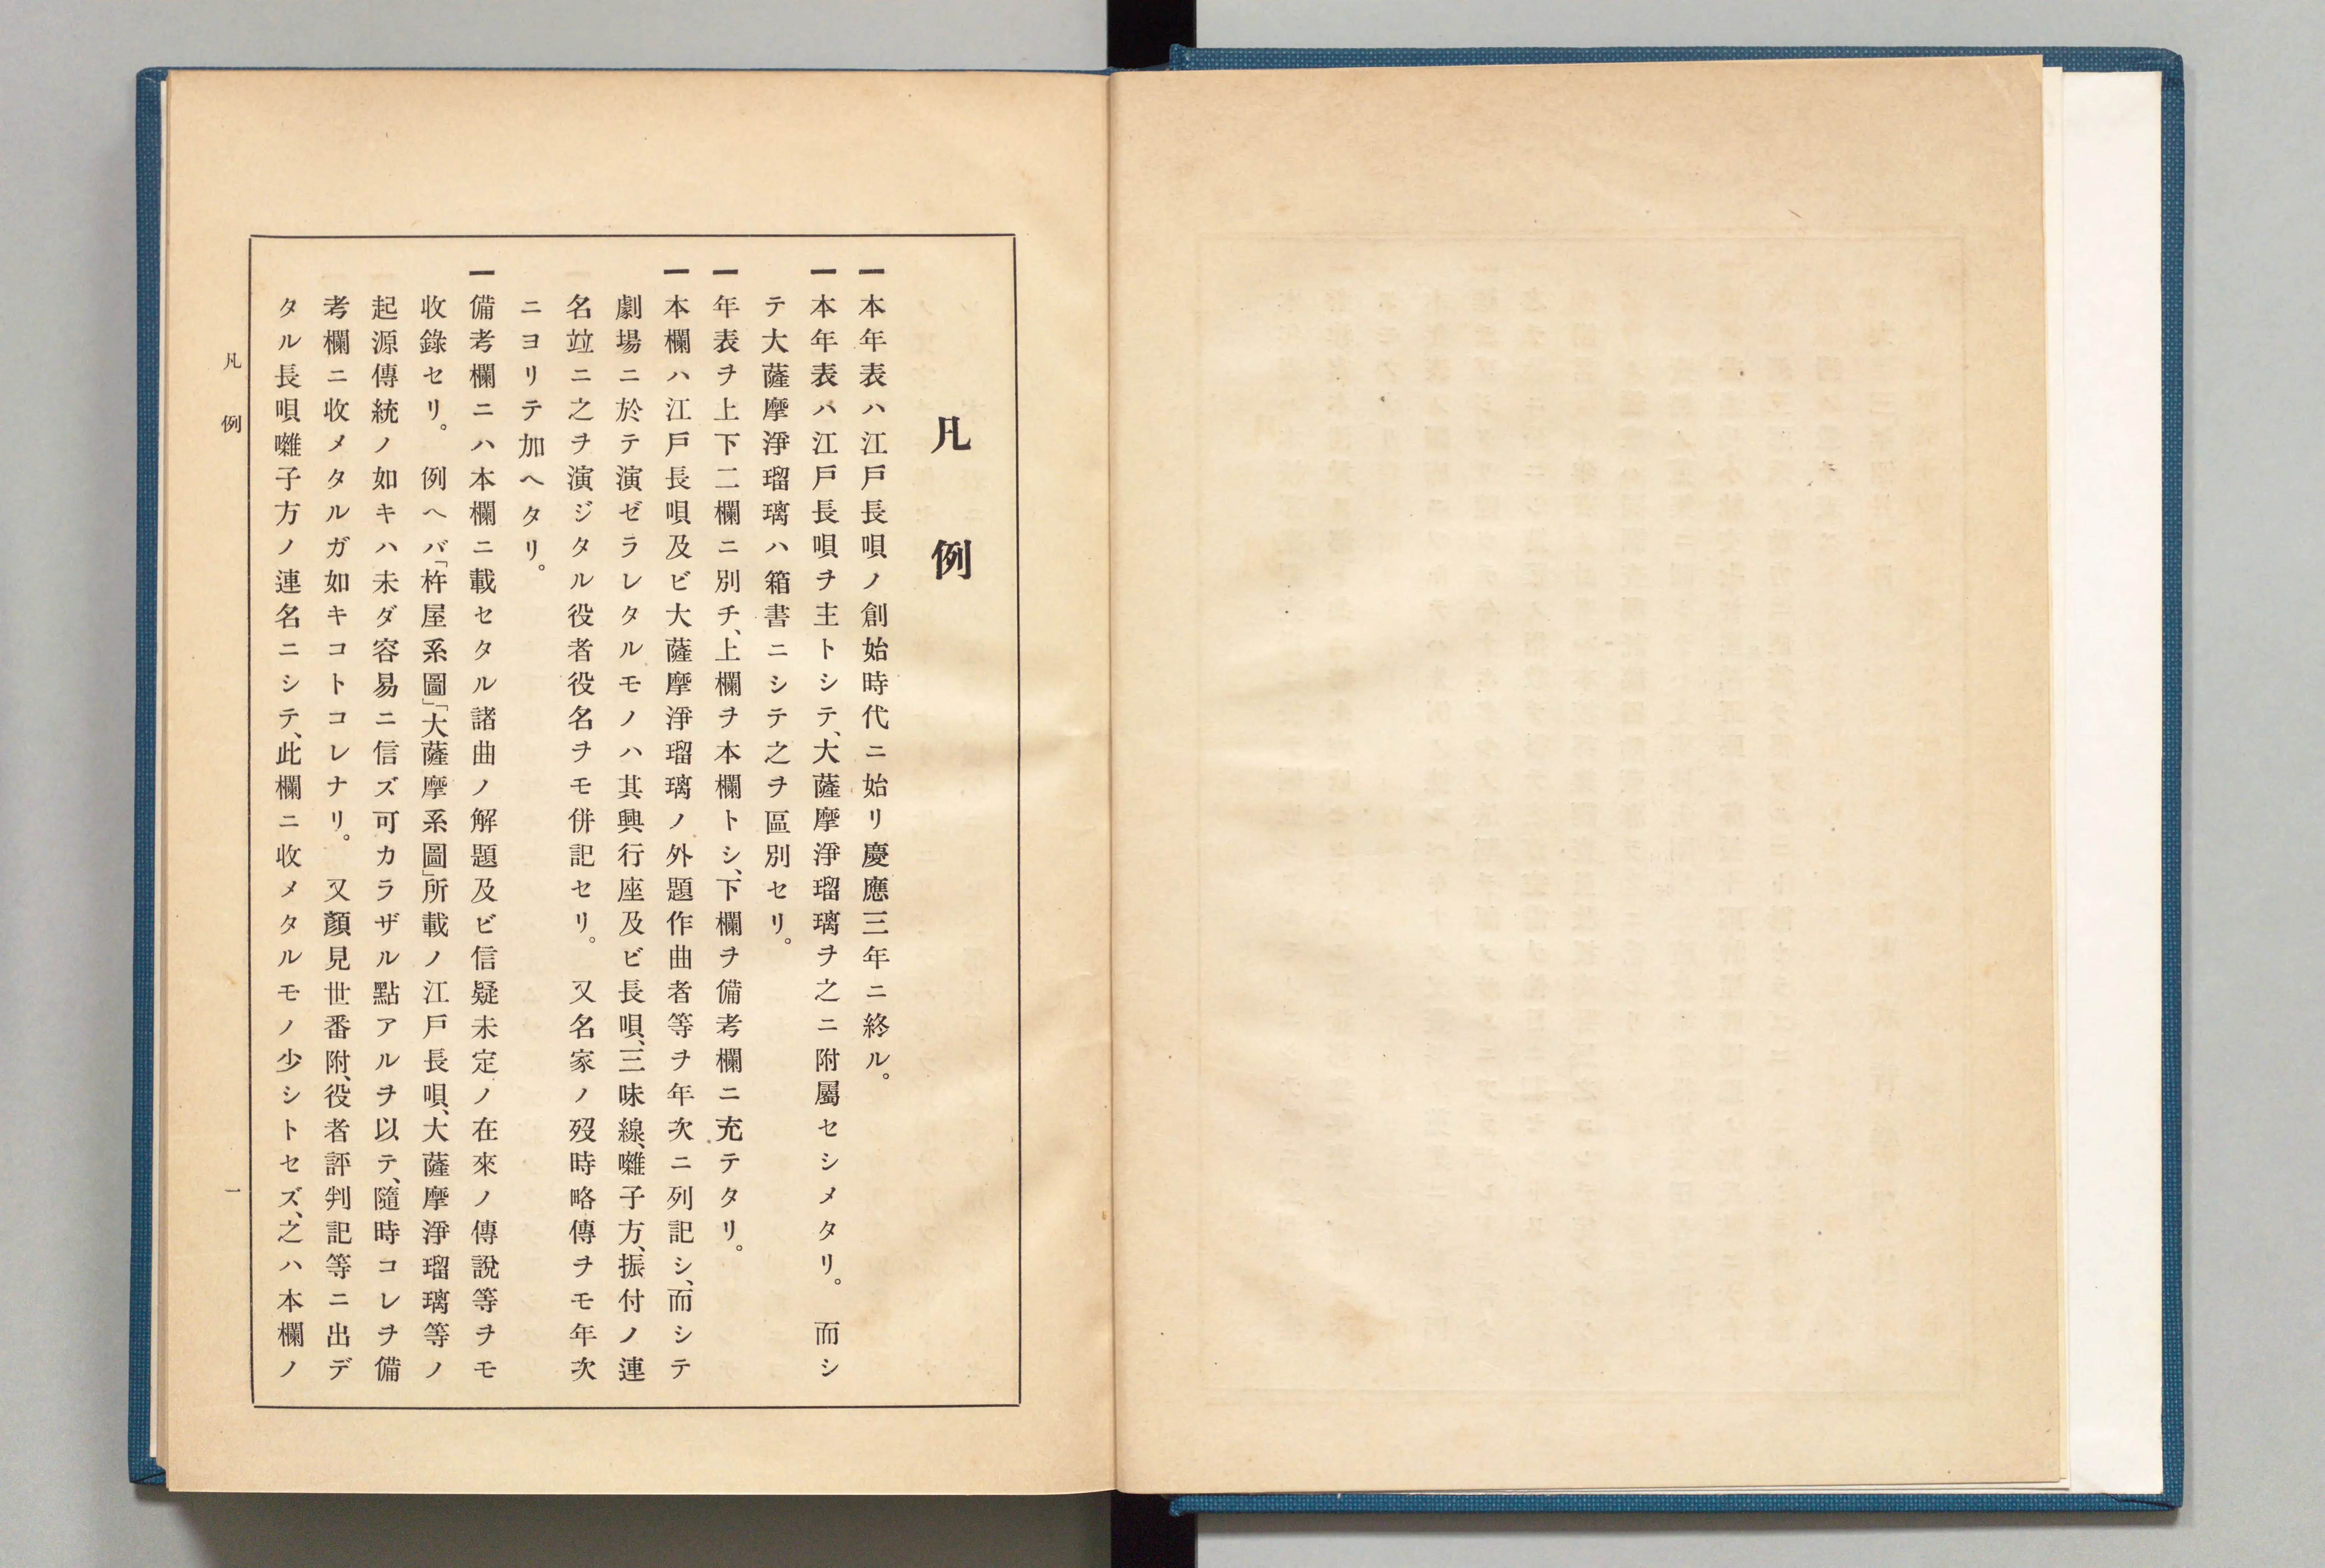 凡例
一本年表ハ江戸長唄ノ創始時代ニ始リ慶應三年ニ終ル。
一本年表ハ江戸長唄ヲ主トシテ、大薩摩淨瑠璃ヲ之ニ附屬セシメタリ。 而シ
テ大薩摩淨瑠璃ハ箱書ニシテ之ヲ區別セリ。
一年表ヲ上下二欄ニ別チ、上欄ヲ本欄トシ、下欄ヲ備考欄ニ充テタリ。
一本欄ハ江戸長唄及ビ大薩摩淨瑠璃ノ外題作曲者等ヲ年次ニ列記シ、而シテ
劇場ニ於テ演ゼラレタルモノハ其興行座及ビ長唄、三味線、囃子方、振付ノ連
名竝ニ之ヲ演ジタル役者役名ヲモ併記セリ。 又名家ノ歿時略傳ヲモ年次
ニヨリテ加ヘタリ。
一備考欄ニハ本欄ニ載セタル諸曲ノ解題及ビ信疑未定ノ在來ノ傳說等ヲモ
收錄セリ。 例ヘバ「杵屋系圖」「大薩摩系圖」所載ノ江戸長唄、大薩摩淨瑠璃等ノ
起源傳統ノ如キハ未ダ容易ニ信ズ可カラザル點アルヲ以テ、隨時コレヲ備
考欄ニ收メタルガ如キコトコレナリ。 又顏見世番附、役者評判記等ニ出デ
タル長唄囃子方ノ連名ニシテ、此欄ニ收メタルモノ少シトセズ、之ハ本欄ノ
凡例
一